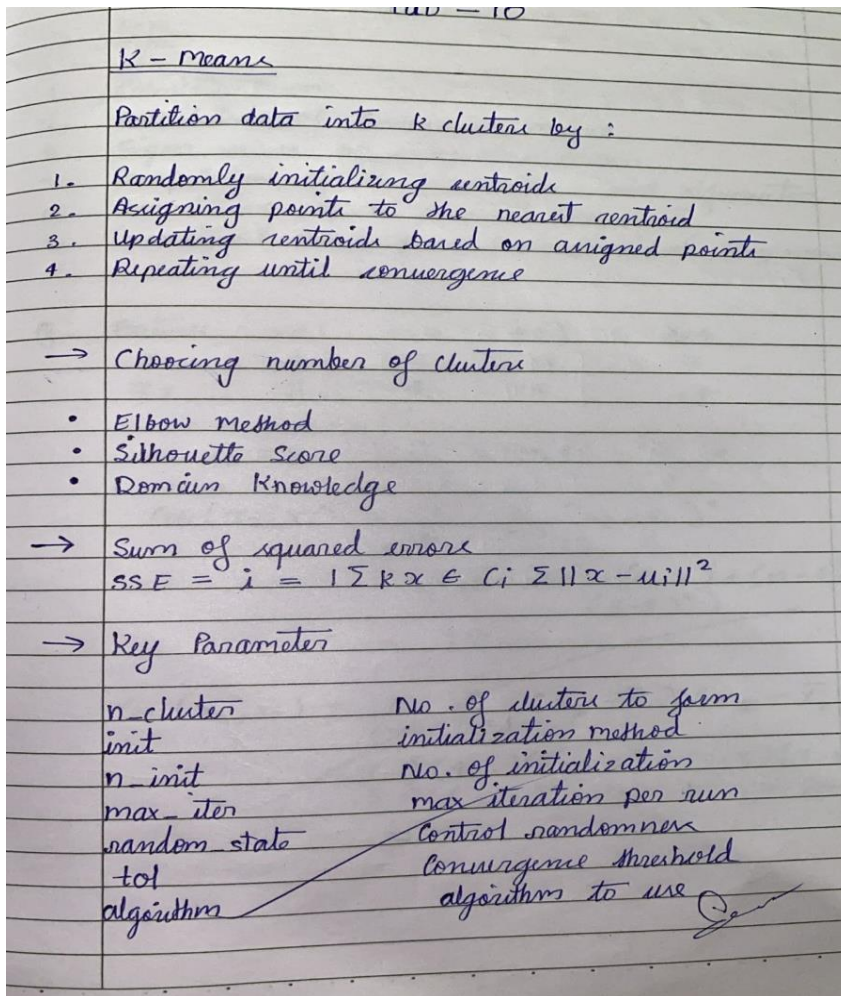 K - Means
Partition data into k clusters by :
1. Randomly initializing centroids
2. Assigning points to the nearest centroid
3. Updating centroids based on assigned points
4. Repeating until convergence
→ Choosing number of clusters
• Elbow method
• Silhouette Score
• Domain Knowledge
→ Sum of squared errors
SSE = i = 1 Σ k x ∈ Ci Σ ||x - μi||²
→ Key Parameter
n_cluster No. of clusters to form
init initialization method
n_init No. of initialization
max_iter max iteration per run
random state Control randomness
tol Convergence threshold
algorithm algorithm to use